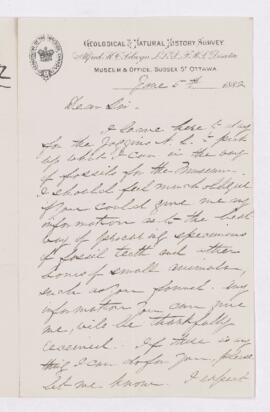 GEOLOGICAL & NATURAL HISTORY SURVEY
Alfred R. C. Selwyn, L.L.D., F.R.S., Director
MUSEUM & OFFICE, SUSSEX ST OTTAWA.
June 5th 1882
Dear Sir.
I leave here to day
for the Joggins N. S. to pick
up what I can in the way
of fossils for the Museum.
I should feel much obliged
if you could give me any
information as to the best
way of procuring specimens
of fossil teeth and other
bones of small animals,
such as you found. Any
information you can give
me, will be thankfully
received. If there is any
thing I can do for you, please
let me know. I expect